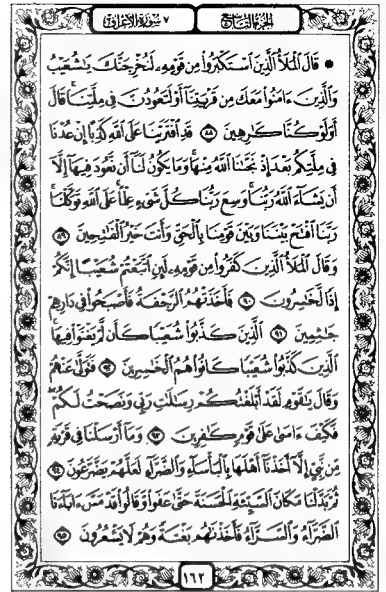 الجزء التاسع
٧ سورة الأعراف
۞ قَالَ ٱلْمَلَأُ ٱلَّذِينَ ٱسْتَكْبَرُوا۟ مِن قَوْمِهِۦ لَنُخْرِجَنَّكَ يَٰشُعَيْبُ
وَٱلَّذِينَ ءَامَنُوا۟ مَعَكَ مِن قَرْيَتِنَآ أَوْ لَتَعُودُنَّ فِى مِلَّتِنَا ۚ قَالَ
أَوَلَوْ كُنَّا كَٰرِهِينَ ٨٨ قَدِ ٱفْتَرَيْنَا عَلَى ٱللَّهِ كَذِبًا إِنْ عُدْنَا
فِى مِلَّتِكُم بَعْدَ إِذْ نَجَّىٰنَا ٱللَّهُ مِنْهَا ۚ وَمَا يَكُونُ لَنَآ أَن نَّعُودَ فِيهَآ إِلَّآ
أَن يَشَآءَ ٱللَّهُ رَبُّنَا ۚ وَسِعَ رَبُّنَا كُلَّ شَىْءٍ عِلْمًا ۚ عَلَى ٱللَّهِ تَوَكَّلْنَا ۚ
رَبَّنَا ٱفْتَحْ بَيْنَنَا وَبَيْنَ قَوْمِنَا بِٱلْحَقِّ وَأَنتَ خَيْرُ ٱلْفَٰتِحِينَ ٨٩
وَقَالَ ٱلْمَلَأُ ٱلَّذِينَ كَفَرُوا۟ مِن قَوْمِهِۦ لَئِنِ ٱتَّبَعْتُمْ شُعَيْبًا إِنَّكُمْ
إِذًا لَّخَٰسِرُونَ ٩٠ فَأَخَذَتْهُمُ ٱلرَّجْفَةُ فَأَصْبَحُوا۟ فِى دَارِهِمْ
جَٰثِمِينَ ٩١ ٱلَّذِينَ كَذَّبُوا۟ شُعَيْبًا كَأَن لَّمْ يَغْنَوْا۟ فِيهَا ۚ
ٱلَّذِينَ كَذَّبُوا۟ شُعَيْبًا كَانُوا۟ هُمُ ٱلْخَٰسِرِينَ ٩٢ فَتَوَلَّىٰ عَنْهُمْ
وَقَالَ يَٰقَوْمِ لَقَدْ أَبْلَغْتُكُمْ رِسَٰلَٰتِ رَبِّى وَنَصَحْتُ لَكُمْ ۖ
فَكَيْفَ ءَاسَىٰ عَلَىٰ قَوْمٍ كَٰفِرِينَ ٩٣ وَمَآ أَرْسَلْنَا فِى قَرْيَةٍ
مِّن نَّبِىٍّ إِلَّآ أَخَذْنَآ أَهْلَهَا بِٱلْبَأْسَآءِ وَٱلضَّرَّآءِ لَعَلَّهُمْ يَضَّرَّعُونَ ٩٤
ثُمَّ بَدَّلْنَا مَكَانَ ٱلسَّيِّئَةِ ٱلْحَسَنَةَ حَتَّىٰ عَفَوا۟ وَّقَالُوا۟ قَدْ مَسَّ ءَابَآءَنَا
ٱلضَّرَّآءُ وَٱلسَّرَّآءُ فَأَخَذْنَٰهُم بَغْتَةً وَهُمْ لَا يَشْعُرُونَ ٩٥
١٦٢